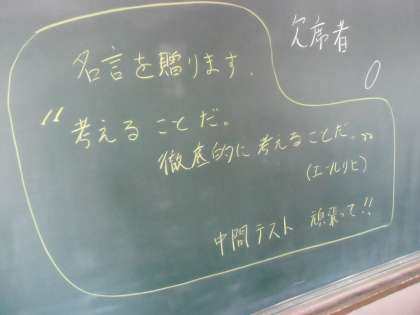 名言を贈ります.
“考えることだ。
徹底的に考えることだ。”
(エールリヒ)
中間テスト 頑張って!!
欠席者
0